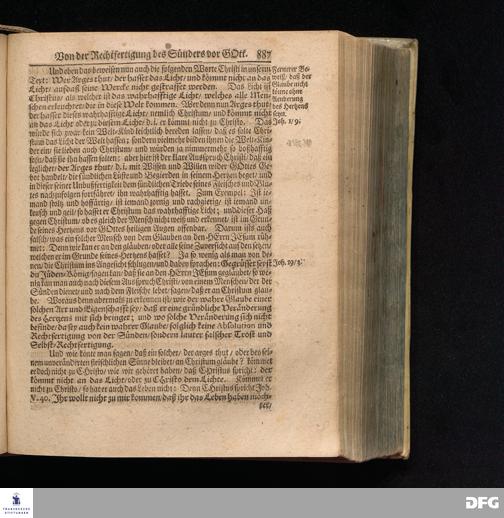 Von der Rechtfertigung des Sünders vor GOtt. 887
Und eben das beweisen nun auch die folgenden Worte Christi in unserm
Text: Wer Arges thut/ der hasset das Licht/ und kömmt nicht an das
Licht/ aufdaß seine Wercke nicht gestraffet werden. Das Licht ist
Christus/ als welcher ist das wahrhafftige Licht/ welches alle Men-
schen erleuchtet/ die in diese Welt kommen. Wer denn nun Arges thut/
der hasset dieses wahrhafftige Licht/ nemlich Christum/ und kömmt nicht
an das Licht oder zu diesem Lichte/ d.i. er kömmt nicht zu Christo. Das
würde sich zwar kein Welt-Kind leichtlich bereden lassen/ daß es solte Chri-
stum das Licht der Welt hassen; sondern vielmehr bilden ihnen die Welt-Kin-
der ein/ sie lieben auch Christum/ und würden ja nimmermehr so boßhafftig
seyn/ daß sie ihn hassen solten: aber hier ist der klare Ausspruch Christi/ daß ein
ieglicher/ der Arges thut/ d.i. mit Wissen und Willen wider GOttes Ge-
bot handelt/ der sündlichen Lüste und Begierden in seinem Hertzen heget/ und
in dieser seiner Unbußfertigkeit dem sündlichen Triebe seines Fleisches und Blu-
tes nachzufolgen fortfähret/ ihn wahrhafftig hasset. Zum Exempel: Ist ie-
mand stoltz und hoffärtig/ ist iemand zornig und rachgierig/ ist iemand un-
keusch und geil/ so hasset er Christum das wahrhafftige Licht; und dieser Haß
gegen Christum/ ob es gleich der Mensch nicht weiß und erkennet/ ist im Grun-
de seines Hertzens vor GOttes heiligen Augen offenbar. Darum ists auch
falsch/ was ein solcher Mensch von dem Glauben an den HErrn JEsum rüh-
met: Denn wie kan er an den glauben/ oder alle seine Zuversicht auf den setzen/
welchen er im Grunde seines Hertzens hasset? Ja so wenig als man von de-
nen/ die Christum ins Angesicht schlugen/ und dabey sprachen: Gegrüsset seyst
du Jüden-König/ sagen kan/ daß sie an den HErrn JEsum geglaubet/ so we-
nig kan man auch nach diesem Ausspruch Christi/ von einem Menschen/ der der
Sünden dienet/ und nach dem Fleische lebet/ sagen/ daß er an Christum glau-
be. Woraus denn abermals zu erkennen ist/ wie der wahre Glaube einer
solchen Art und Eigenschafft sey/ daß er eine gründliche Veränderung
des Hertzens mit sich bringet; und wo solche Veränderung sich nicht
befinde/ da sey auch kein wahrer Glaube/ folglich keine Absolution und
Rechtfertigung von der Sünden/ sondern lauter falscher Trost und
Selbst-Rechtfertigung.
Und wie könte man sagen/ daß ein solcher/ der arges thut/ oder bey sei-
nem unveränderten fleischlichen Sinne bleibet/ an Christum gläube? kömmet
er doch nicht zu Christo/ wie wir gehöret haben/ daß Christus spricht: der
kömmt nicht an das Licht/ oder zu Christo dem Lichte. Kömmet er
nicht zu Christo/ so hat er auch das Leben nicht: Denn Christus spricht Joh.
V. 40. Ihr wollt nicht zu mir kommen/ daß ihr das Leben haben möch-
tet/
Fernerer Be-
weiß/ daß der
Glaube nicht
könne ohne
Aenderung
des Hertzens
seyn.
Joh. 1/9.
Joh. 19/3.
FRANCKESCHE
STIFTUNGEN
DFG